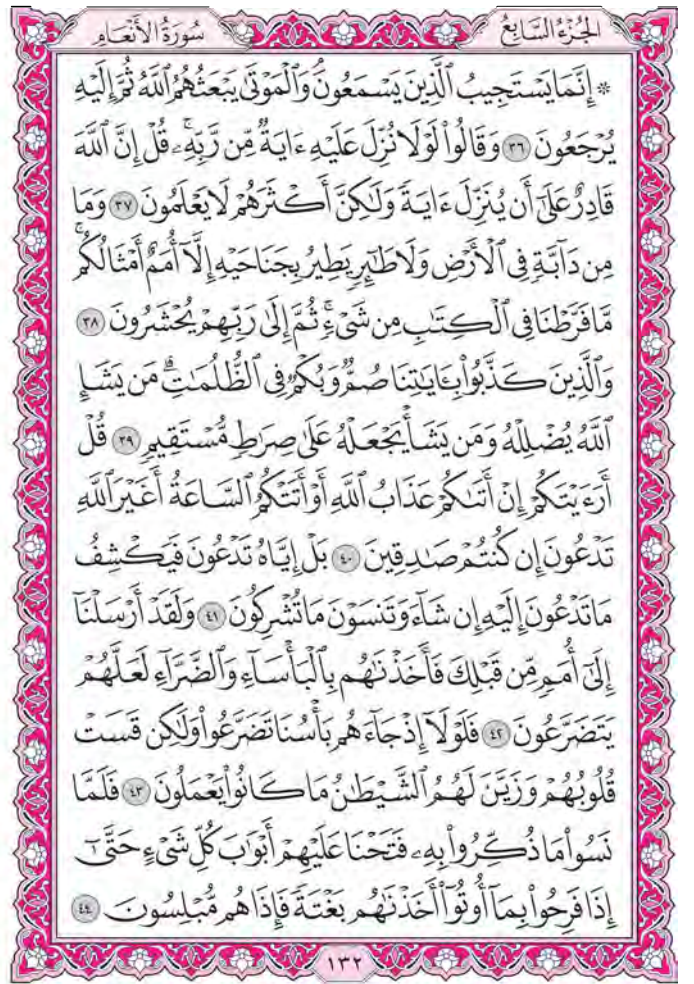 سُورَةُ الأَنْعَامِ
الجُزْءُ السَّابِعُ
۞ إِنَّمَا يَسْتَجِيبُ ٱلَّذِينَ يَسْمَعُونَۘ وَٱلْمَوْتَىٰ يَبْعَثُهُمُ ٱللَّهُ ثُمَّ إِلَيْهِ
يُرْجَعُونَ ٣٦ وَقَالُوا۟ لَوْلَا نُزِّلَ عَلَيْهِ ءَايَةٌ مِّن رَّبِّهِۦۚ قُلْ إِنَّ ٱللَّهَ
قَادِرٌ عَلَىٰٓ أَن يُنَزِّلَ ءَايَةً وَلَـٰكِنَّ أَكْثَرَهُمْ لَا يَعْلَمُونَ ٣٧ وَمَا
مِن دَآبَّةٍ فِى ٱلْأَرْضِ وَلَا طَـٰٓئِرٍ يَطِيرُ بِجَنَاحَيْهِ إِلَّآ أُمَمٌ أَمْثَالُكُمۚ
مَّا فَرَّطْنَا فِى ٱلْكِتَـٰبِ مِن شَىْءٍۚ ثُمَّ إِلَىٰ رَبِّهِمْ يُحْشَرُونَ ٣٨
وَٱلَّذِينَ كَذَّبُوا۟ بِـَٔايَـٰتِنَا صُمٌّ وَبُكْمٌ فِى ٱلظُّلُمَـٰتِۗ مَن يَشَإِ
ٱللَّهُ يُضْلِلْهُ وَمَن يَشَأْ يَجْعَلْهُ عَلَىٰ صِرَٰطٍ مُّسْتَقِيمٍ ٣٩ قُلْ
أَرَءَيْتَكُمْ إِنْ أَتَىٰكُمْ عَذَابُ ٱللَّهِ أَوْ أَتَتْكُمُ ٱلسَّاعَةُ أَغَيْرَ ٱللَّهِ
تَدْعُونَ إِن كُنتُمْ صَـٰدِقِينَ ٤٠ بَلْ إِيَّاهُ تَدْعُونَ فَيَكْشِفُ
مَا تَدْعُونَ إِلَيْهِ إِن شَآءَ وَتَنسَوْنَ مَا تُشْرِكُونَ ٤١ وَلَقَدْ أَرْسَلْنَآ
إِلَىٰٓ أُمَمٍ مِّن قَبْلِكَ فَأَخَذْنَـٰهُم بِٱلْبَأْسَآءِ وَٱلضَّرَّآءِ لَعَلَّهُمْ
يَتَضَرَّعُونَ ٤٢ فَلَوْلَآ إِذْ جَآءَهُم بَأْسُنَا تَضَرَّعُوا۟ وَلَـٰكِن قَسَتْ
قُلُوبُهُمْ وَزَيَّنَ لَهُمُ ٱلشَّيْطَـٰنُ مَا كَانُوا۟ يَعْمَلُونَ ٤٣ فَلَمَّا
نَسُوا۟ مَا ذُكِّرُوا۟ بِهِۦ فَتَحْنَا عَلَيْهِمْ أَبْوَٰبَ كُلِّ شَىْءٍ حَتَّىٰٓ
إِذَا فَرِحُوا۟ بِمَآ أُوتُوٓا۟ أَخَذْنَـٰهُم بَغْتَةً فَإِذَا هُم مُّبْلِسُونَ ٤٤
١٣٢